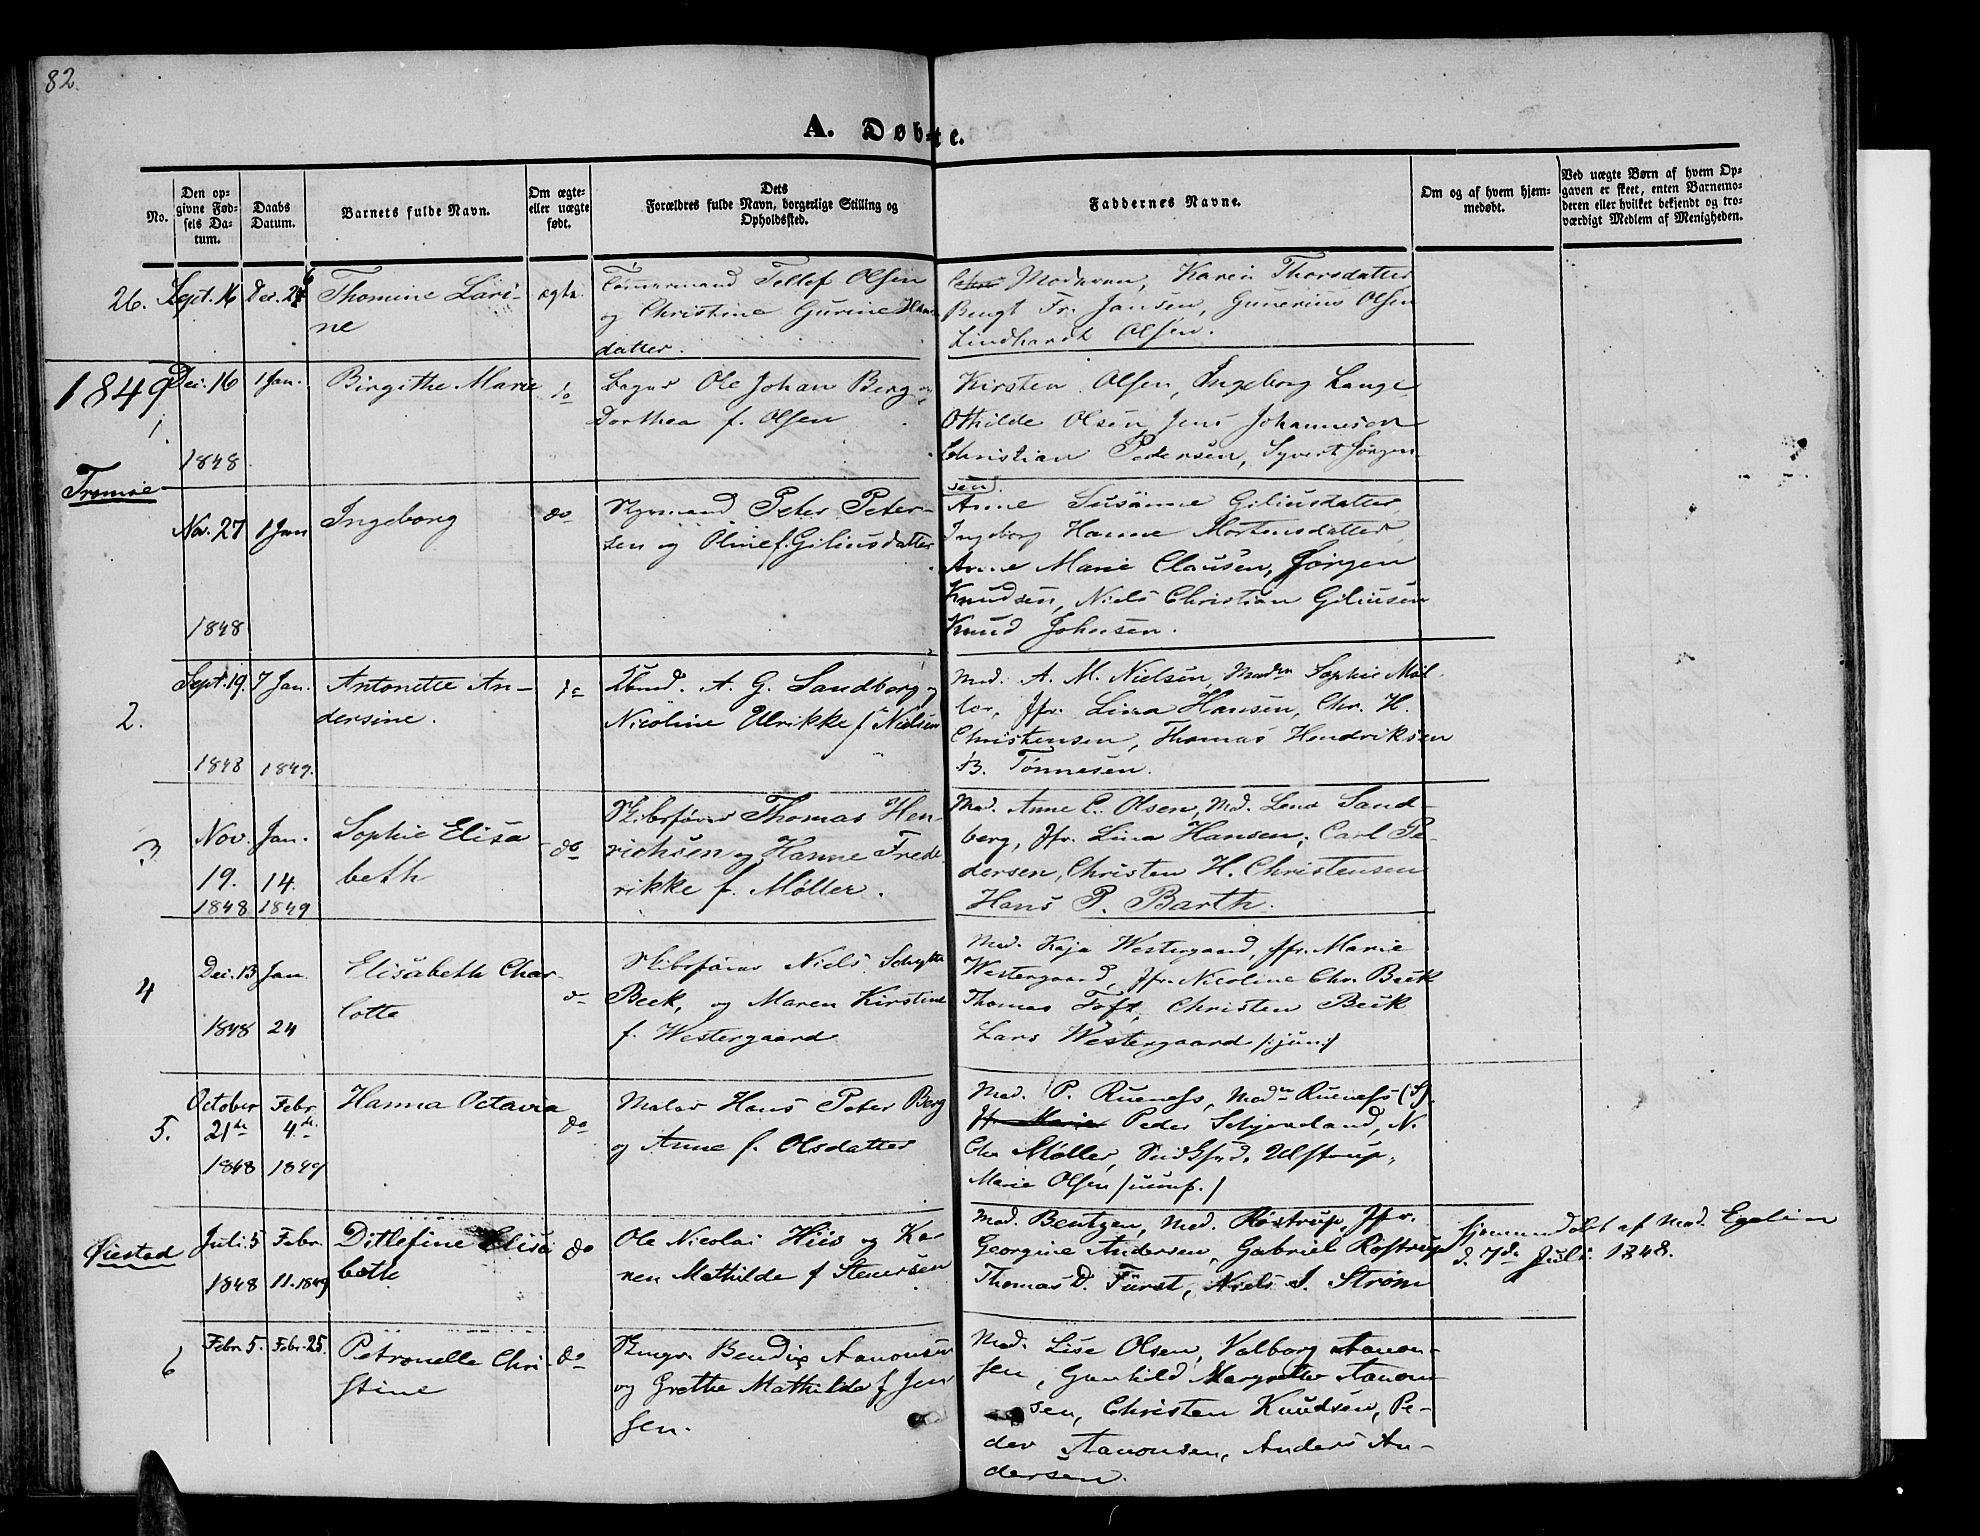 82.
A. Døbte.
No.
Den op-
givne Fød-
sels Da-
tum.
Daabs
Datum.
Barnets fulde Navn.
Om ægte-
eller uægte
født.
Dets
Forældres fulde Navn, borgerlige Stilling og
Opholdssted.
Faddernes Navne.
Om og af hvem hjem-
medøbt.
Ved uægte Børn af hvem Op-
gaven er skeet, enten Barnemo-
deren eller hvilket bekjendt og tro-
værdigt Medlem af Menigheden.
26. Sept. 16 Dec. Thomine Lari-
ne
ægte.
Tømermand Tellef Olsen
og Christine Gurine Hans
datter.
Moderen, Karen Thorsdatter
Bengt Fr. Jansen, Gunerius Olsen
Lindhardt Olsen.
1849
1.
Dec. 16
1848
1 Jan.
Birgithe Marie
do
Bager Ole Johan Berg og
Dorthea f. Olsen
Kirsten Olsen, Ingeborg Lange
Othilde Olsen Jens Johannesen
Christian Pedersen, Syvert Jørgen
sen.
Tromøe
Nov. 27
1848
1 Jan
Ingeborg
do
Styrmand Peter Peter-
sen og Oline f. Giliusdatter
Anne Susanne Giliusdatter
Ingeborg Hanne Mortensdatter
Anne Marie Clausen, Jørgen
Knudsen, Niels Christian Giliusen
Knud Johnsen.
2.
Sept. 19.
1848
7 Jan.
1849.
Antonette An-
dersine.
do
A. G. Sandborg og
Nicoline Ulrikke f Nielsen
Mad. A. M. Nielsen, Madm Sophie Møl-
ler, Jfr. Lina Hansen, Chr. H.
Christensen, Thomas Hendriksen
B. Tønnesen.
3
Nov.
19.
1848
Jan.
14.
1849
Sophie Elisa
beth
do
Skibsfører Thomas Hen
richsen og Hanne Frede-
rikke f. Møller.
Mad. Anne C. Olsen, Md. Lena Sand-
berg, Jfr. Lina Hansen, Carl Pe-
dersen, Christen H. Christensen
Hans P. Barth.
4
Dec. 13
1848
Jan.
24
Elisabeth Char-
lotte
do
Skibsfører Niels Schytte
Beck, og Maren Kirstine
f. Westergaard
Mad. Kaja Westergaard, Jfr. Marie
Westergaard, Jfr. Nicoline Chr. Beck
Thomas Toft, Christen Beck
Lars Westergaard /:jun:/
5.
October
21de
1848
Febr.
4de
1849
Hanna Octavia
do
Maler Hans Peter Berg
og Anne f. Olsdatter
Mad. P. Rueness, Madm Rueness (S).
Jfr Marie Peder Schjeveland, N.
Chr Møller, Ulstrup,
Marie Olsen
Øiestad
Juli. 5
1848
Febr.
11. 1849
Ditlefine Elisa
beth
do
Ole Nicolai Hiis og Ka-
ren Mathilde f Stenersen
Mad. Bentzen, Mad. Røstrup, Jfr.
Georgine Andersen, Gabriel Rostrup
Thomas D. Fürst, Niels J. Strøm
Hjemmedøbt af Mad. Egelien
d. 7de Juli 1848.
6
Febr. 5.
Febr. 25.
Petronelle Chri
stine
do
Bendix Aanonsen
og Grethe Mathilde f Jen
sen.
Mad. Lise Olsen, Valborg Aanon-
sen, Gunhild Margrethe Aanon-
sen, Christen Knudsen, Pe-
der Aanonsen, Anders An-
dersen.